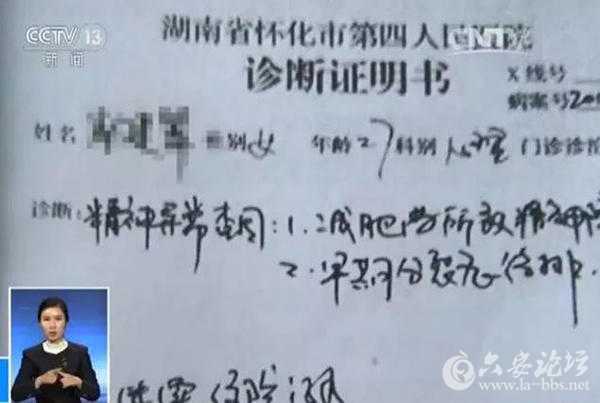 CCTV 13
新闻
湖南省怀化市第四人民医院
诊断证明书
X线号
病案号200
姓名 别女 年龄27科别心理 门诊
诊断: 精神异常查因: 1. 减肥药所致精神
2. 早期分裂症待排.
六安论坛
www.la-bbs.net